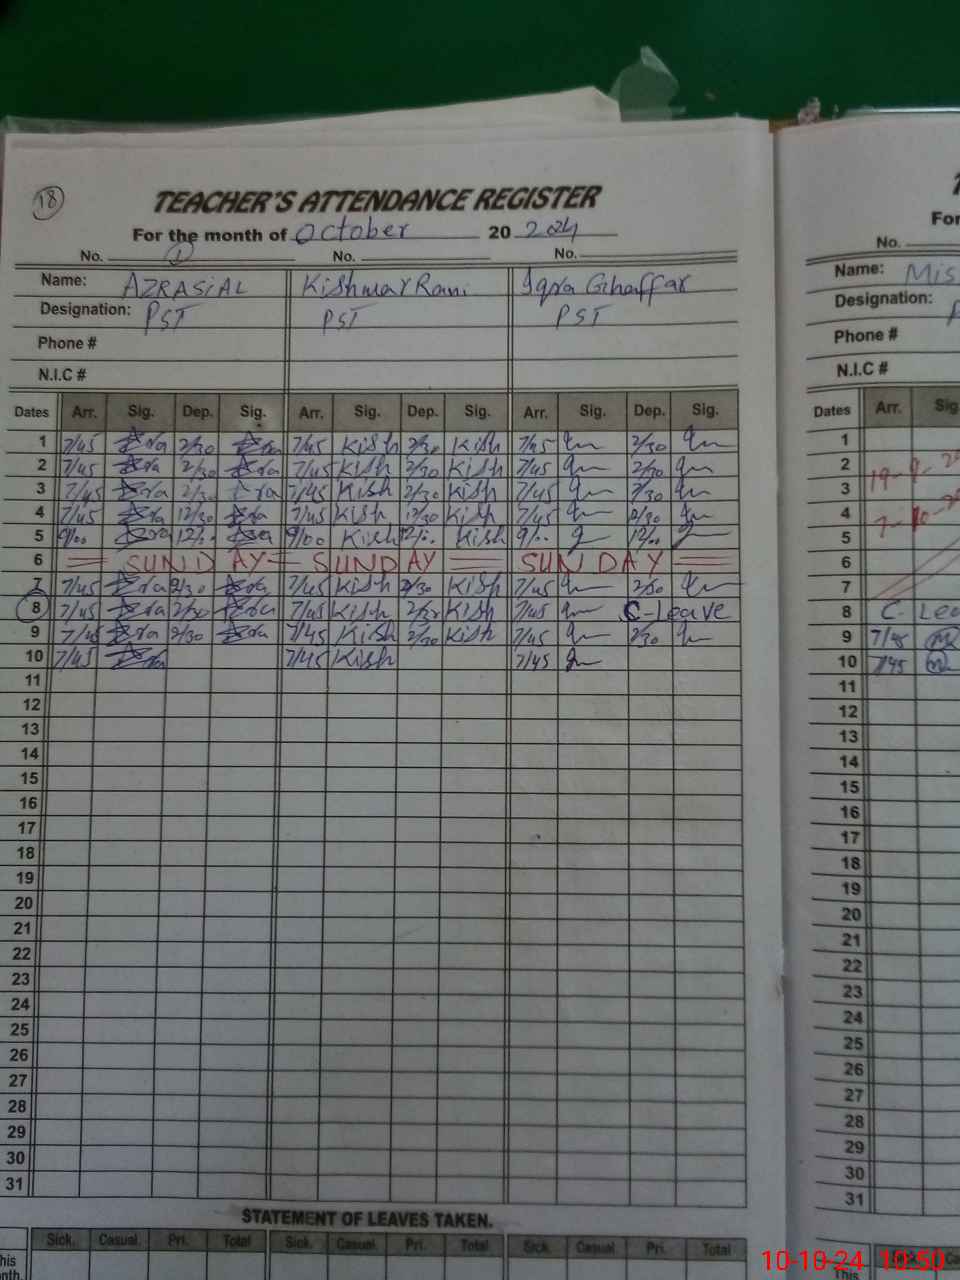 18
TEACHER'S ATTENDANCE REGISTER
For the month of October 2024
No. 1 No. No.
Name: AZRASIAL Kishwar Rani Iqra Ghaffar
Designation: PST PST PST
Phone #
N.I.C #
Dates Arr. Sig. Dep. Sig. Arr. Sig. Dep. Sig. Arr. Sig. Dep. Sig.
1 7/45 2/30 7/45 Kish 2/30 Kish 7/45 2/30
2 7/45 2/30 7/45 Kish 2/30 Kish 7/45 2/30
3 7/45 2/30 7/45 Kish 2/30 Kish 7/45 2/30
4 7/45 12/30 7/45 Kish 12/30 Kish 7/45 12/30
5 9/00 12/00 9/00 Kish 12/00 Kish 9/00 12/00
6 SUNDAY SUNDAY SUNDAY
7 7/45 2/30 7/45 Kish 2/30 Kish 7/45 2/30
8 7/45 2/30 7/45 Kish 2/30 Kish 7/45 C-leave
9 7/45 2/30 7/45 Kish 2/30 Kish 7/45 2/30
10 7/45 7/45 Kish 7/45
11
12
13
14
15
16
17
18
19
20
21
22
23
24
25
26
27
28
29
30
31
STATEMENT OF LEAVES TAKEN.
Sick. Casual. Pri. Total Sick. Casual. Pri. Total Sick. Casual. Pri. Total
No.
Name: Mis
Designation:
Phone #
N.I.C #
Dates Arr. Sig
1
2
3
4
5
6
7
8 C- Lea
9 7/45
10 7/45
11
12
13
14
15
16
17
18
19
20
21
22
23
24
25
26
27
28
29
30
31
This
10-10-24 10:50